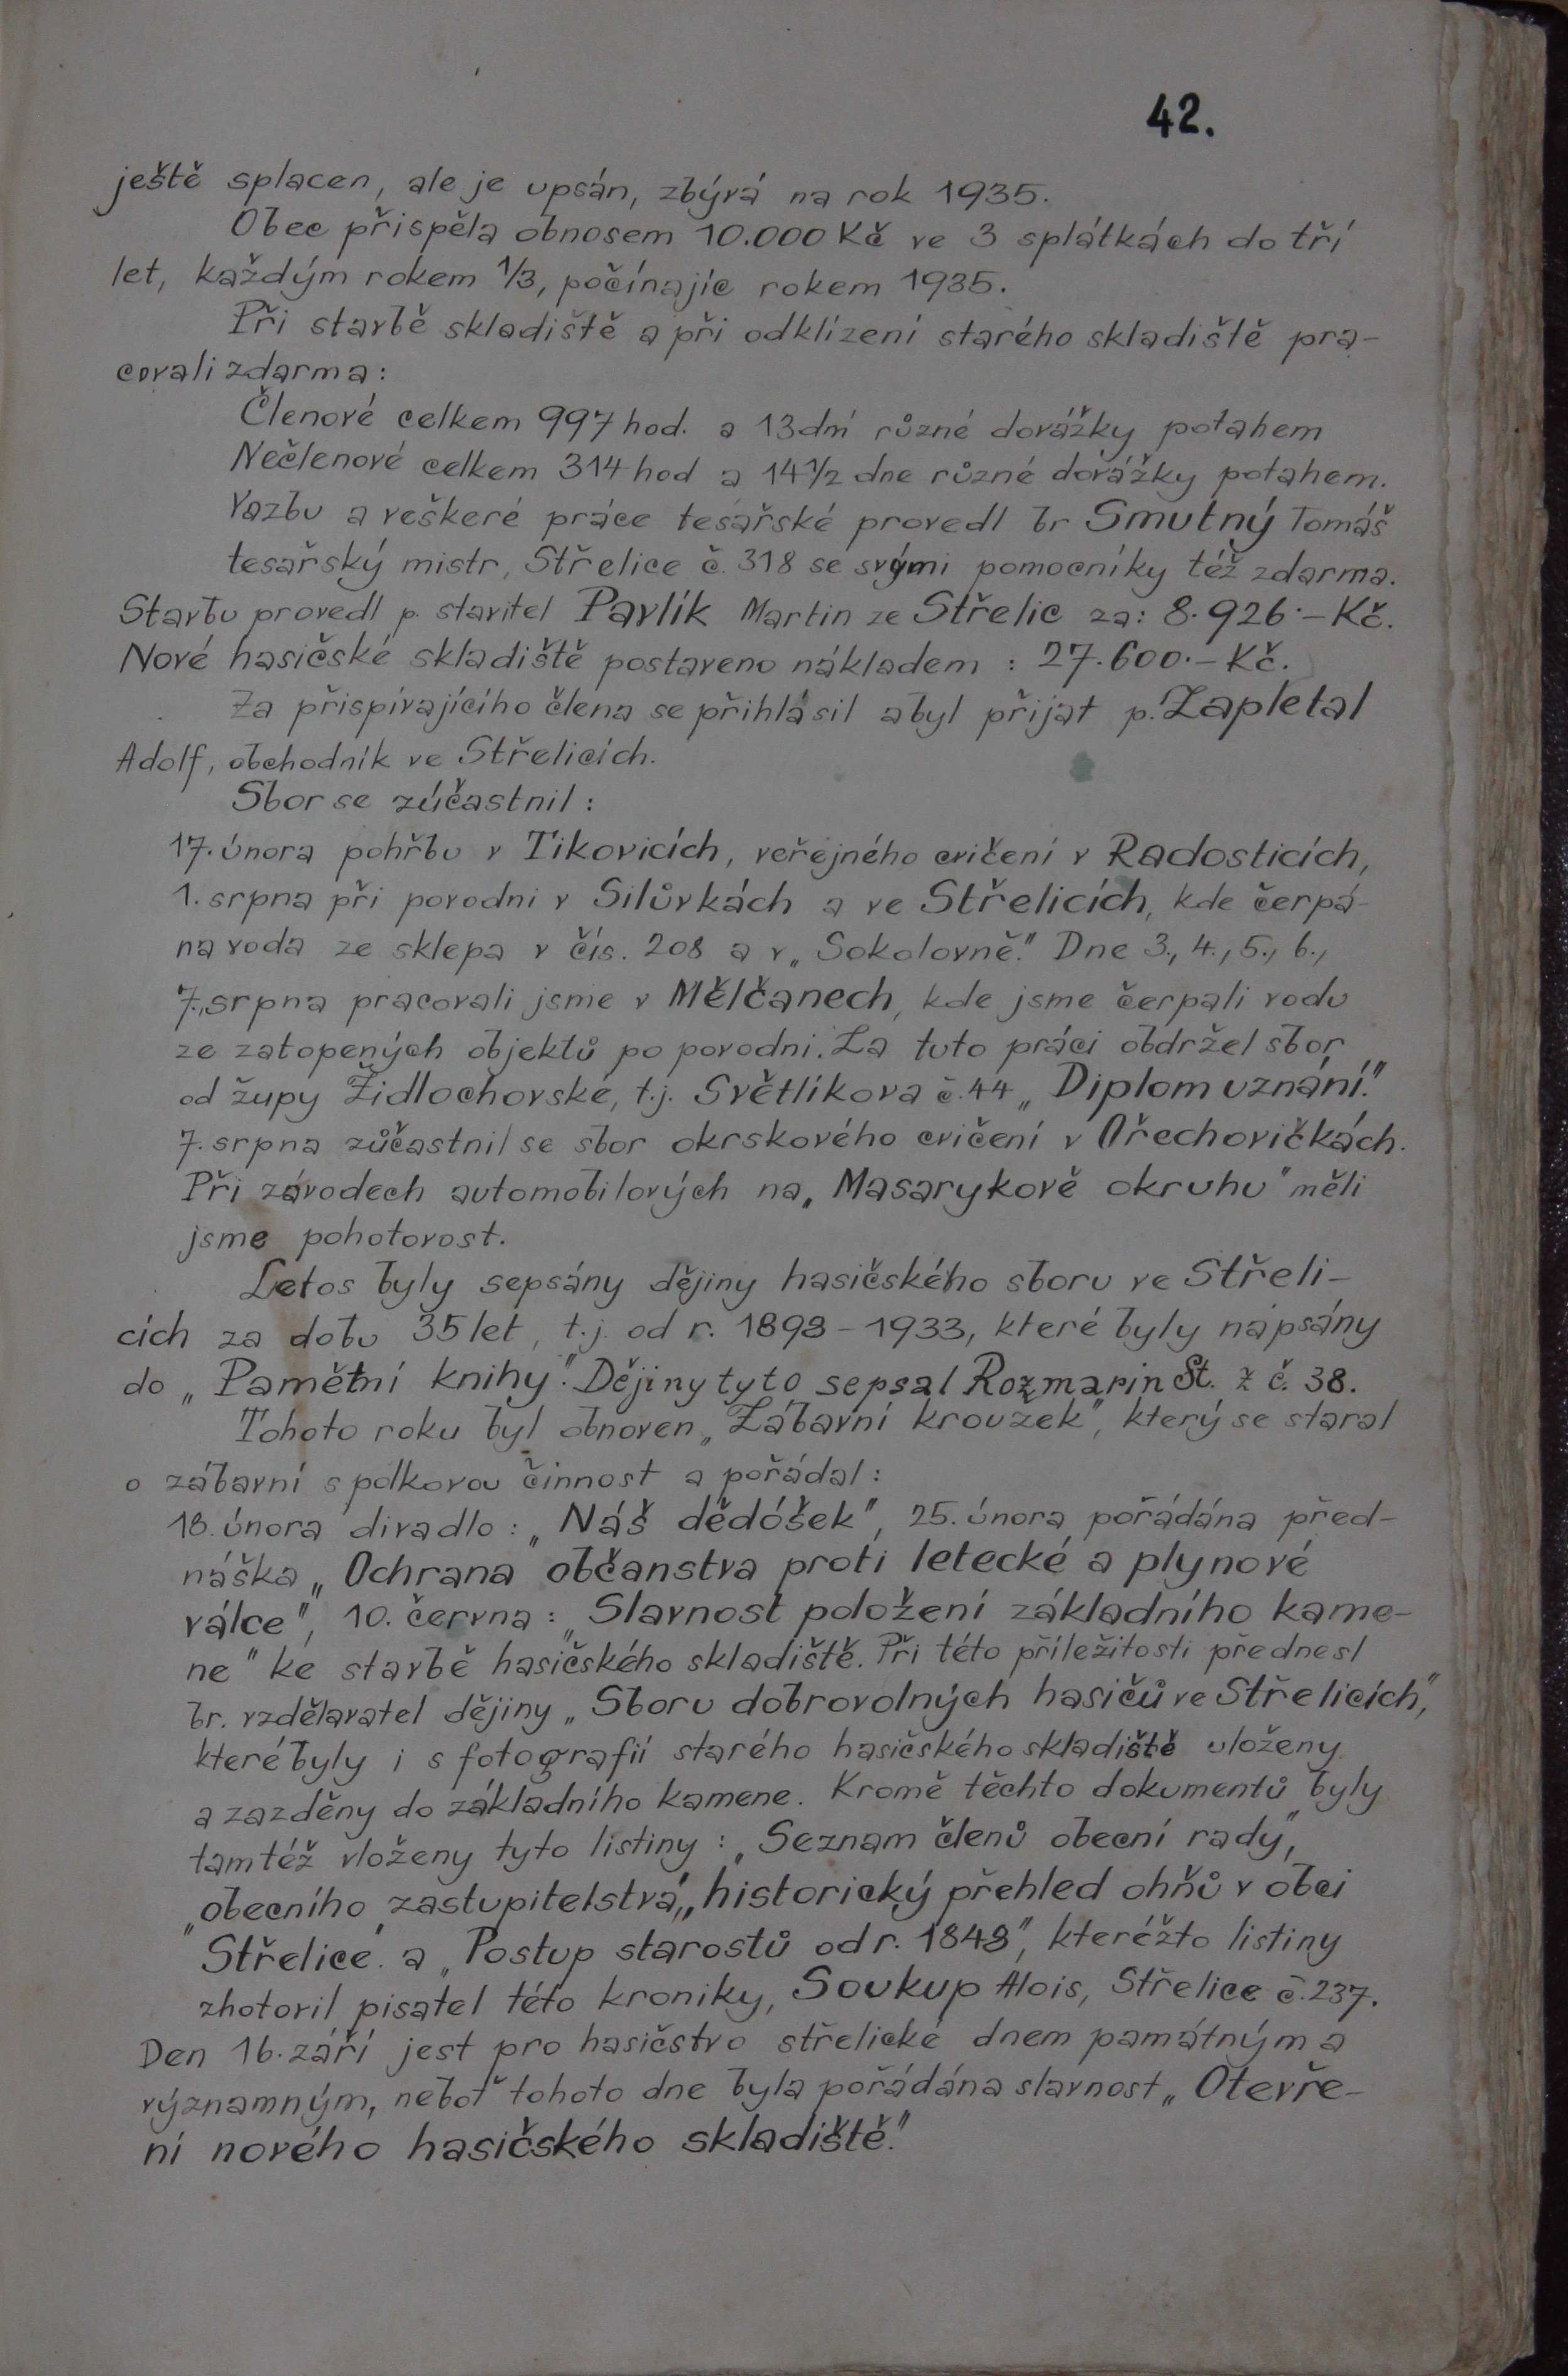 42.
ještě splacen, ale je upsán, zbývá na rok 1935.
Obec přispěla obnosem 10.000 Kč ve 3 splátkách do tří
let, každým rokem 1/3, počínajíc rokem 1935.
Při stavbě skladiště a při odklízení starého skladiště pra-
covali zdarma:
Členové celkem 997 hod. a 13 dní různé dovážky potahem
Nečlenové celkem 314 hod a 14 1/2 dne různé dovážky potahem.
Vazbu a veškeré práce tesařské provedl br Smutný Tomáš
tesařský mistr, Střelice č. 318 se svými pomocníky též zdarma.
Stavbu provedl p. stavitel Pavlík Martin ze Střelic za: 8.926.- Kč.
Nové hasičské skladiště postaveno nákladem : 27.600.- Kč.
Za přispívajícího člena se přihlásil a byl přijat p. Zapletal
Adolf, obchodník ve Střelicích.
Sbor se zúčastnil :
17. února pohřbu v Tikovicích, veřejného cvičení v Radosticích,
1. srpna při povodni v Silůvkách a ve Střelicích, kde čerpá-
na voda ze sklepa v čís. 208 a v „Sokolovně." Dne 3., 4., 5., 6.,
7., srpna pracovali jsme v Mělčanech, kde jsme čerpali vodu
ze zatopených objektů po povodni. Za tuto práci obdržel sbor
od župy Židlochovské, t.j. Světlíkova č. 44 „Diplom uznání."
7. srpna zůčastnil se sbor okrskového cvičení v Ořechovičkách.
Při závodech automobilových na „Masarykově okruhu" měli
jsme pohotovost.
Letos byly sepsány dějiny hasičského sboru ve Střeli-
cích za dobu 35 let, t.j. od r. 1898 - 1933, které byly napsány
do „Pamětní knihy". Dějiny tyto sepsal Rozmarin St. z č. 38.
Tohoto roku byl obnoven „Zábavní kroužek", který se staral
o zábavní spolkovou činnost a pořádal :
18. února divadlo : „Náš dědóšek", 25. února pořádána před-
náška „Ochrana občanstva proti letecké a plynové
válce", 10. června : „Slavnost položení základního kame-
ne" ke stavbě hasičského skladiště. Při této příležitosti přednesl
br. vzdělavatel dějiny „Sboru dobrovolných hasičů ve Střelicích",
které byly i s fotografií starého hasičského skladiště uloženy
a zazděny do základního kamene. Kromě těchto dokumentů byly
tamtéž vloženy tyto listiny : „Seznam členů obecní rady",
„obecního zastupitelstva", „historický přehled ohňů v obci
Střelice" a „Postup starostů od r. 1848", kteréžto listiny
zhotovil pisatel této kroniky, Soukup Alois, Střelice č. 237.
Den 16. září jest pro hasičstvo střelické dnem památným a
významným, neboť tohoto dne byla pořádána slavnost „Otevře-
ní nového hasičského skladiště."